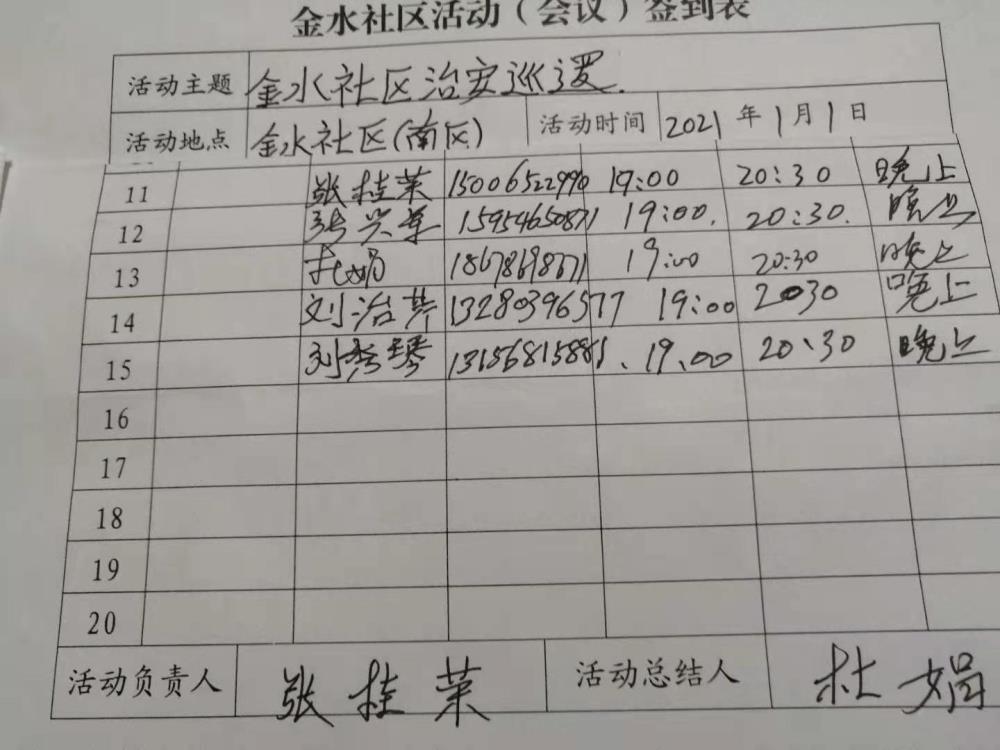 金水社区活动（会议）签到表
活动主题 金水社区治安巡逻.
活动地点 金水社区(南区) 活动时间 2021年1月1日
11 张桂荣 15006522990 19:00 20:30 晚上
12 张兴军 15954650871 19:00. 20:30. 晚上
13 杜娟 18678698671 19:00 20:30 晚上
14 刘治芹 13280396577 19:00 2030 晚上
15 刘秀琴 19.00 20:30 晚上
16
17
18
19
20
活动负责人 张桂荣 活动总结人 杜娟